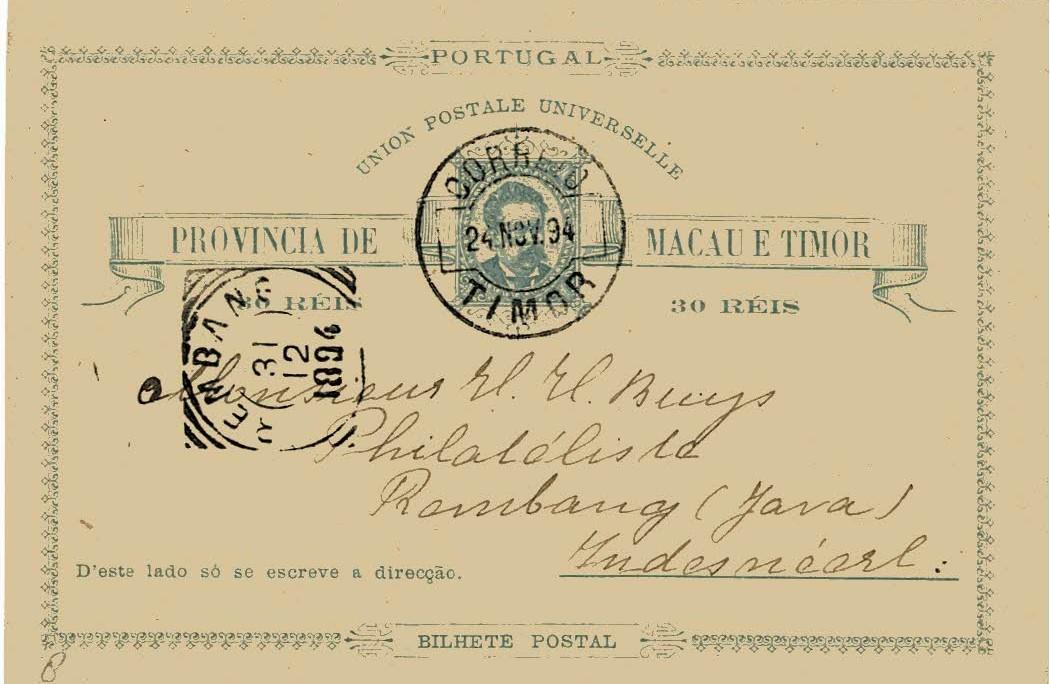 PORTUGAL
UNION POSTALE UNIVERSELLE
CORREIO
24 NOV. 94
TIMOR
PROVINCIA DE MACAU E TIMOR
30 RÉIS 30 RÉIS
31
12
1894
Monsieur H. H. Buys
Philatéliste
Rembang (Java)
Indes néerl:
D'este lado só se escreve a direcção.
BILHETE POSTAL